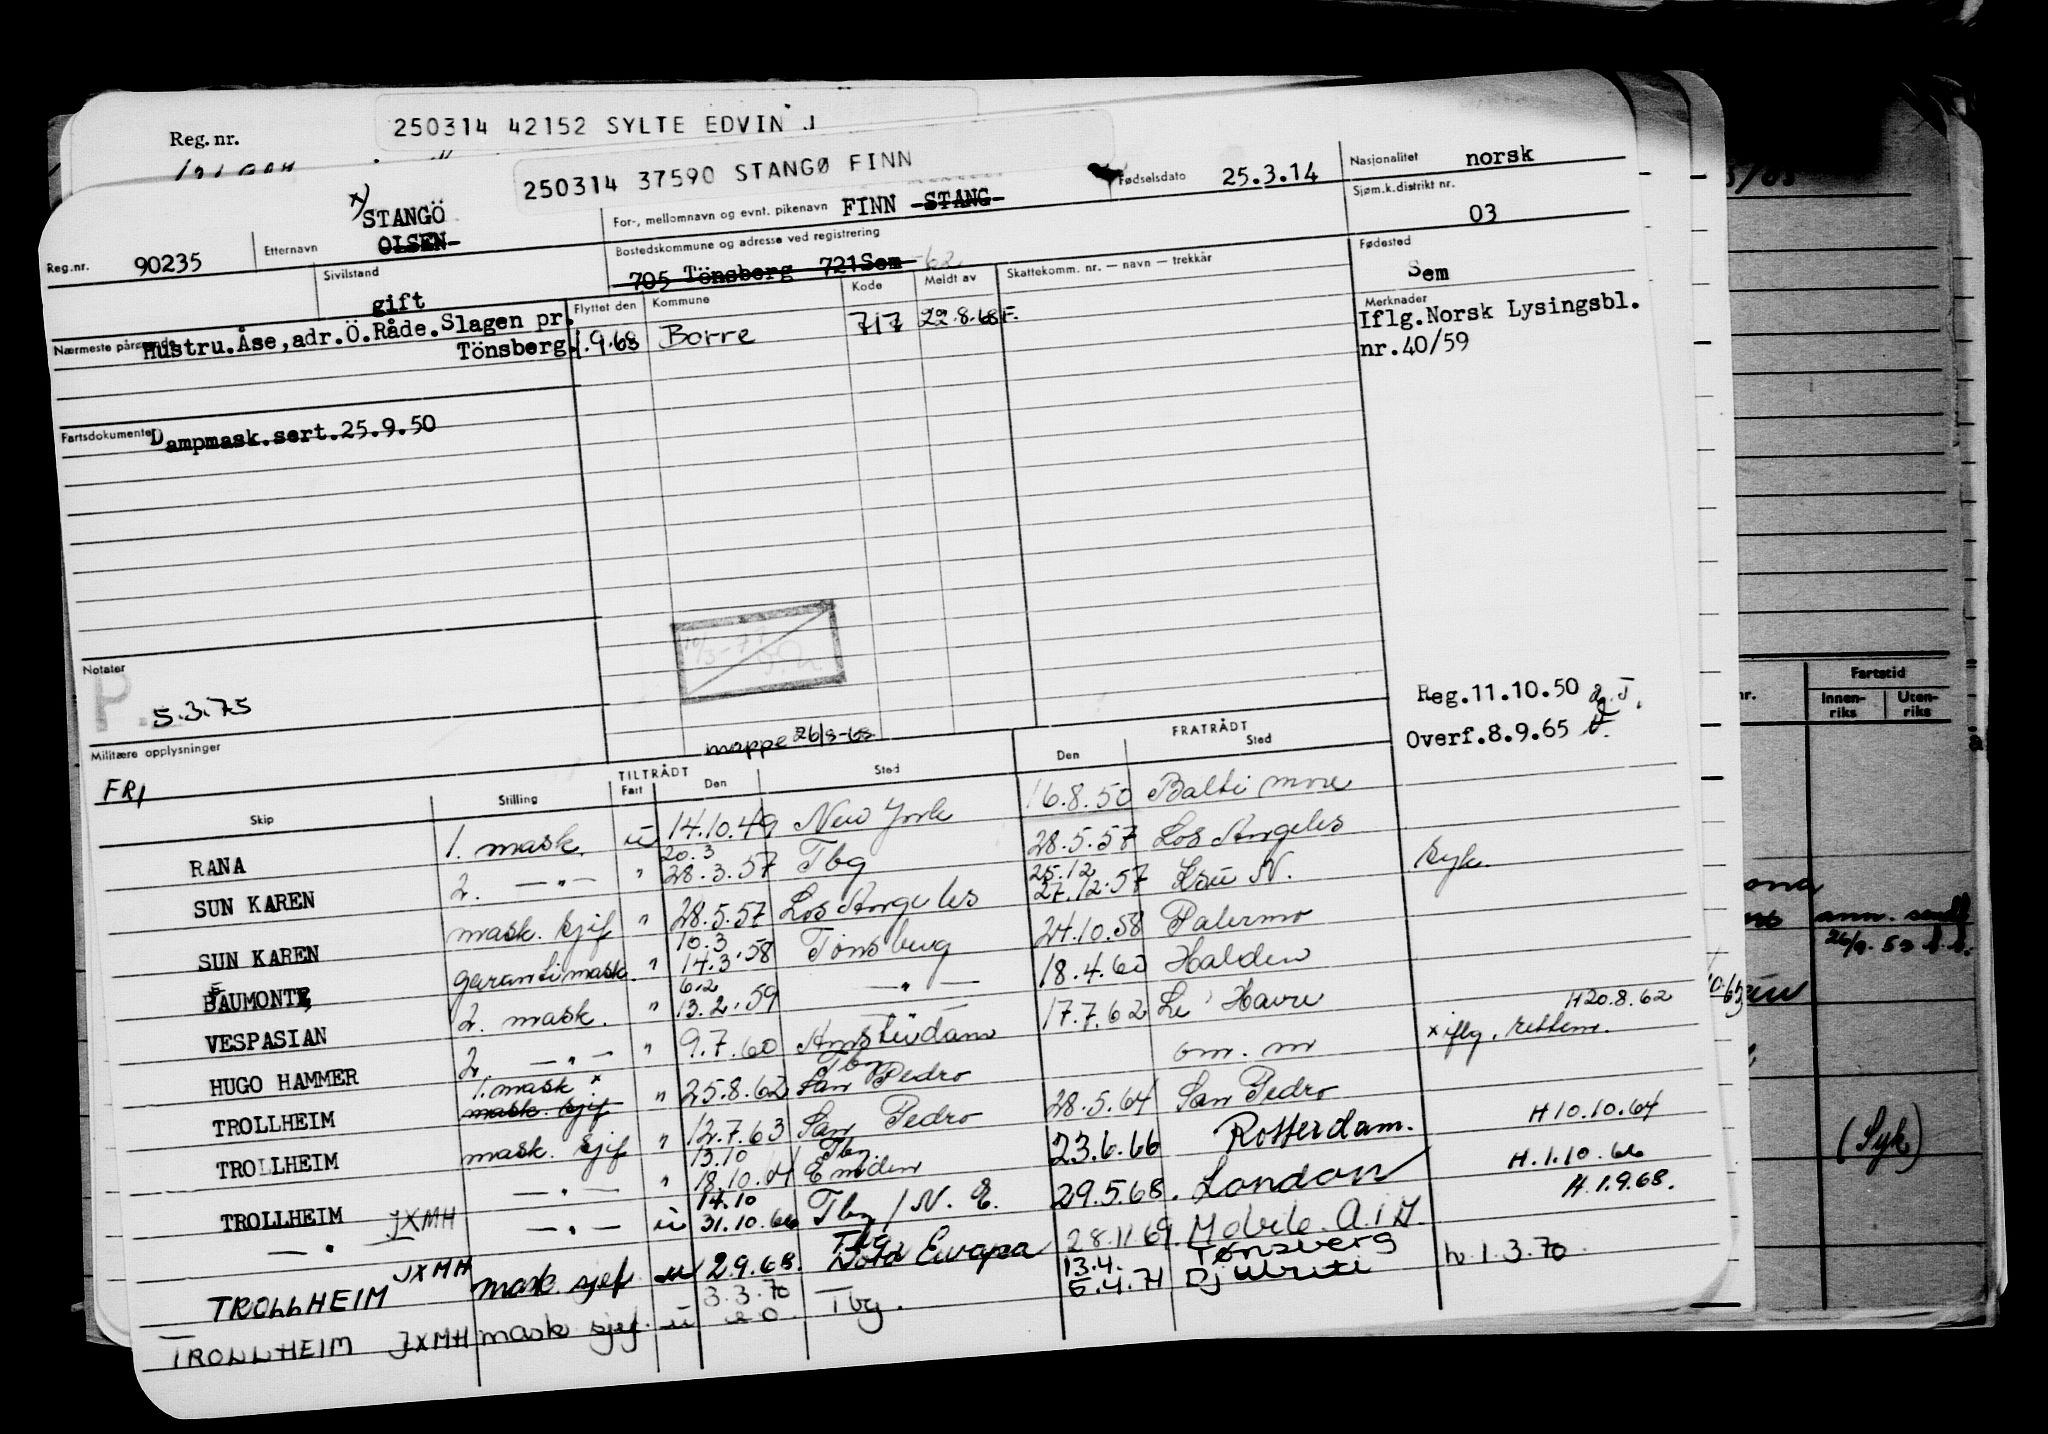 Reg. nr.
250314 42152 SYLTE EDVIN J
250314 37590 STANGØ FINN
Reg.nr. 90235
Etternavn x) STANGÖ
OLSEN
For-, mellomnavn og evnt. pikenavn FINN STANG
Fødselsdato 25.3.14
Nasjonalitet norsk
Sjøm.k.distrikt nr. 03
Sivilstand gift
Bostedskommune og adresse ved registrering
705 Tönsberg 721 Sem -62
Fødested Sem
Nærmeste pårørende Hustru.Åse,adr.Ö.Råde.Slagen pr.
Tönsberg.
Flyttet den Kommune Kode Meldt av Skattekomm. nr. — navn — trekkår
1.9.68 Borre 717 22.8.68 F.
Merknader
Iflg.Norsk Lysingsbl.
nr.40/59
Fartsdokumenter Dampmask.sert.25.9.50
Notater
P. 5.3.75
Reg.11.10.50
Overf.8.9.65
mappe 26/8-68
Militære opplysninger
FRI
TILTRÅDT FRATRÅDT
Skip Stilling Fart Den Sted Den Sted
RANA 1. mask. u 14.10.49 New York 16.8.50 Baltimore
SUN KAREN 2. —"— " 20.3 28.3.57 Tbg 28.5.57 Los Angeles
SUN KAREN mask. sjef " 28.5.57 Los Angeles 25.12 27.12.57 Ksu N. syk.
BEAUMONT garantimask. " 10.3 14.3.58 Tönsberg 24.10.58 Palermo
VESPASIAN 2. mask. " 6.2 13.2.59 —"— 18.4.60 Halden
HUGO HAMMER 2. —"— " 9.7.60 Amsterdam 17.7.62 Le Havre H 20.8.62
TROLLHEIM 1. mask x mask. sjef " 25.8.62 Tbg San Pedro om. m x iflg. rettem.
TROLLHEIM mask. sjef " 12.7.63 San Pedro 28.5.64 San Pedro
TROLLHEIM —"— " 13.10 18.10.64 Tbg Emden 23.6.66 Rotterdam. H 10.10.64
—"— JXMH —"— u 14.10 31.10.66 Tbg / N. E. 29.5.68. London H. 1.10.66
TROLLHEIM JXMH mask. sjef u 2.9.68. Tbg Nord Europa 28.11.69. Mobile. H. 1.9.68.
TROLLHEIM JXMH mask. sjef. u 3.3.70 Tbg. 13.4. 5.4.71 Tønsberg h. 1.3.70
Fartstid
Innen-riks Uten-riks
ann. sendt
(Syk)